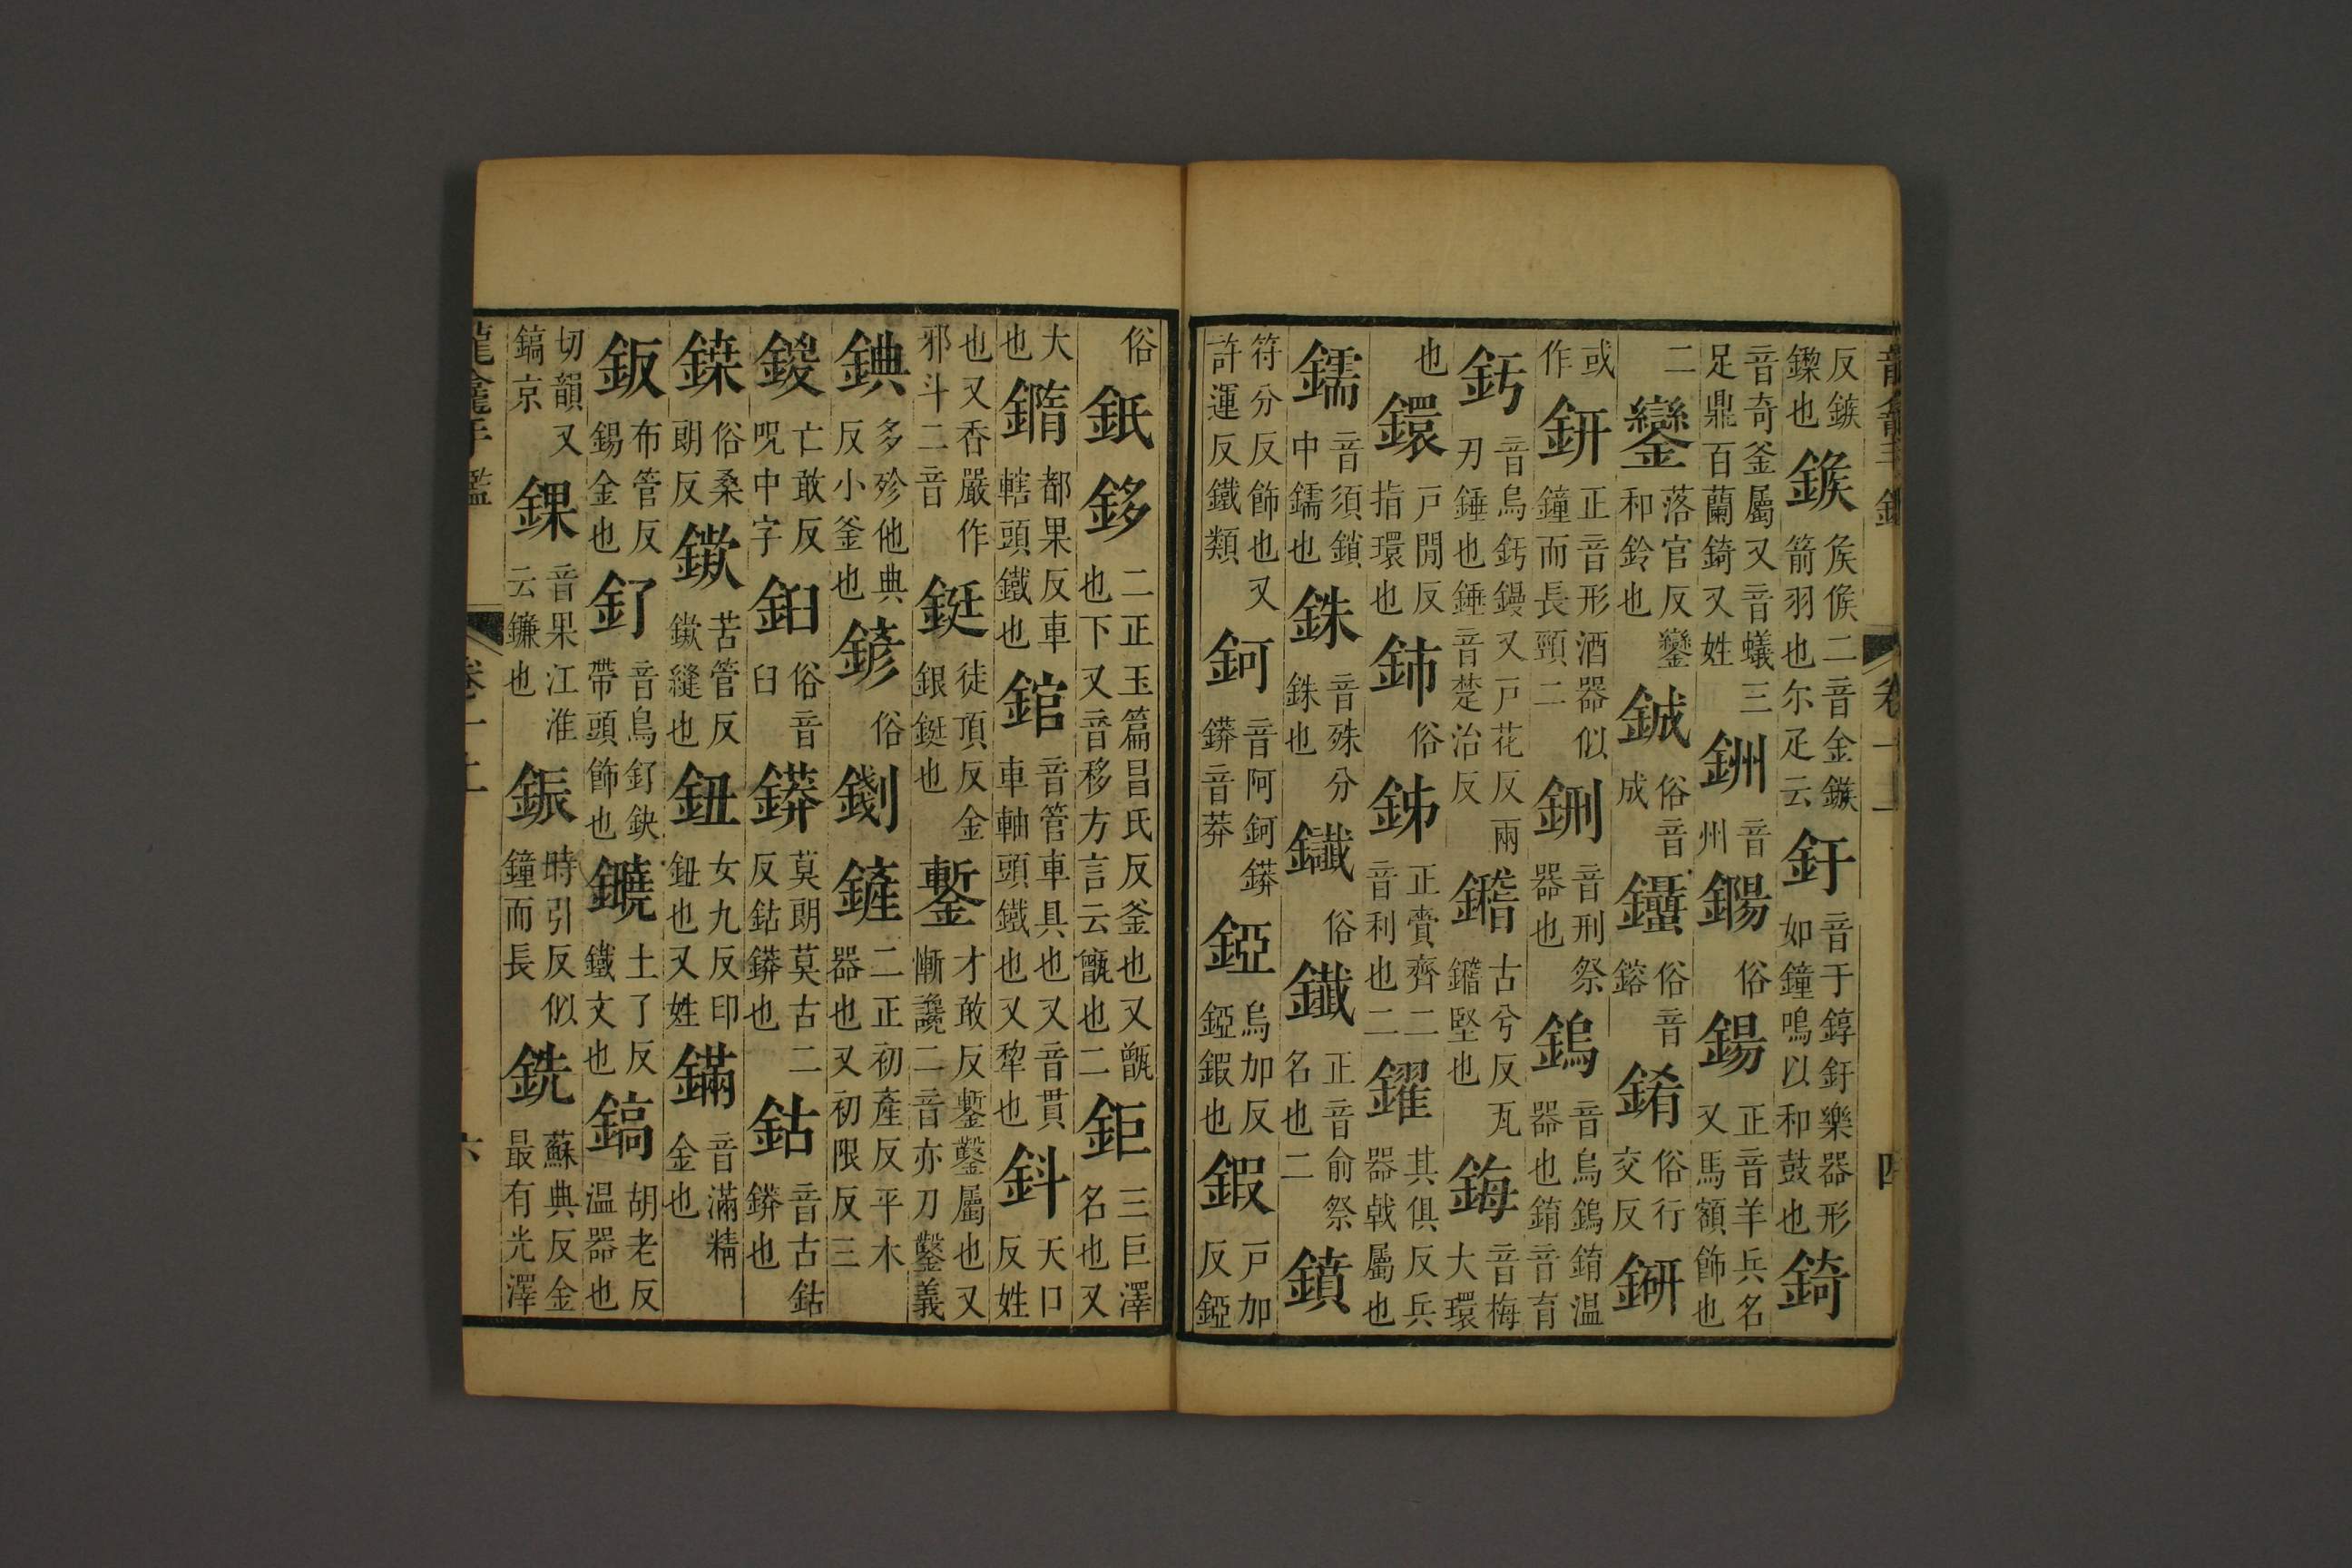 反鏃鏫也鍭矦帿二音金鏃箭羽也尓疋云釪音于錞釪樂器形如鐘鳴以和鼓也錡
音奇釜屬又音蟻三足鼎百蘭錡又姓銂音州鐊俗鍚正音羊兵名又馬額飾也
二鑾落官反鑾和鈴也鋮俗音成鑘俗音鎔錥俗行交反鈃
或作鈃正音形酒器似鐘而長頸二鉶音刑祭器也鎢音烏鎢錥温器也錥音育
釫音烏釫鏝又戸花反兩刃錘也錘音楚治反鍇古兮反鍇堅也鋂音梅大環
也鐶戸関反指環也鈰俗銻正賫齊二音利也二鑺其俱反兵器戟屬也
鑐音須鎖中鑐也銖音殊分銖也鑯俗鑯正音俞祭名也二鐨
符分反飾也又許運反鐵類鈳音阿鈳鏻音莽錏烏加反錏鍜也鍜戸加反錏
俗
鈪鉹二正玉篇昌氏反釜也又甑也下又音移方言云甑也二鉅三巨澤名也又
大也鐫都果反車轄頭鐵也錧音管車具也又音貫車軸頭鐵也又犂也鈄天口反姓
也又香嚴作邪斗二音鋌徒頂反金銀鋌也鏨才敢反鏨鑿屬也又慚讒二音亦刀鑿義
錪多殄他典反小釜也鏒俗剷鏟二正初産反平木器也又初限反三
鋄亡敢反呪中字鉑俗音臼鏻莫朗莫古二反鈷鏻也鈷音古鈷鏻也
鎟俗桑朗反鏉苦管反鏉縫也鈕女九反印鈕也又姓鏋音滿精金也
鈑布管反鍚金也釕音鳥釕鈌帶頭飾也鐃土了反鐵文也鎬胡老反温器也
切韻又鎬京錁音果江淮云鐮也鋠時引反似鐘而長銑蘇典反金最有光澤